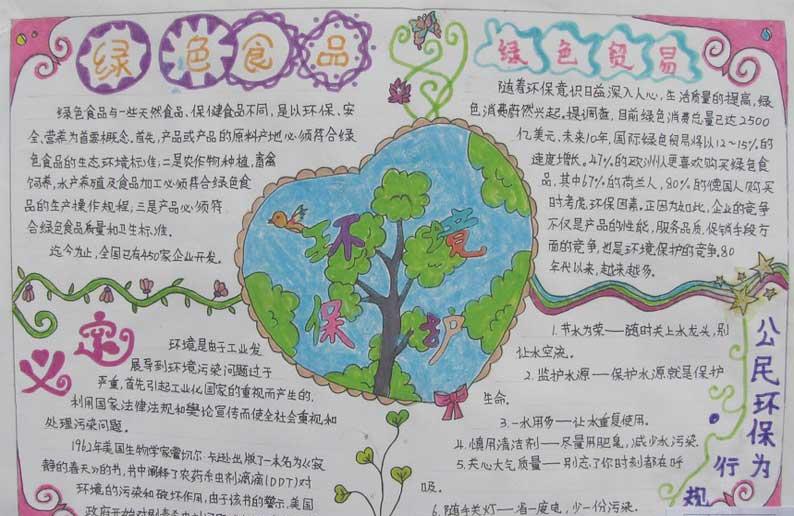 绿色食品
绿色食品与一些天然食品、保健食品不同，是以环保、安
全、营养为首要概念。首先，产品或产品的原料产地必须符合绿
色食品的生态环境标准，二是农作物种植，畜禽
饲养，水产养殖及食品加工必须符合绿色食
品的生产操作规程，三是产品必须符
合绿色食品质量和卫生标准。
迄今为止，全国已有450家企业开发。
绿色贸易
随着环保意识日益深入人心，生活质量的提高，绿
色消费蔚然兴起。据调查，目前绿色消费总量已达2500
亿美元，未来10年，国际绿色贸易将以12~15%的
速度增长。47%的欧洲人更喜欢购买绿色食
品，其中67%的荷兰人，80%的德国人购买
时考虑环保因素。正因为如此，企业的竞争
不仅是产品的性能，服务品质，促销手段方
面的竞争，也是环境保护的竞争。80
年代以来，越来越多。
环境
保护
定义
环境是由于工业发
展导到环境污染问题过于
严重，首先引起工业化国家的重视而产生的，
利用国家法律法规和舆论宣传而使全社会重视和
处理污染问题。
1962年美国生物学家蕾切尔·卡逊出版了一本名为《寂
静的春天》的书，书中阐释了农药杀虫剂滴滴(DDT)对
环境的污染和破坏作用，由于该书的警示，美国
政府开始对剧毒杀虫剂
公民环保为
行规
1.节水为荣——随时关上水龙头，别
让水空流。
2.监护水源——保护水源就是保护
生命。
3.一水用多——让水重复使用。
4.慎用清洁剂——尽量用肥皂，减少水污染。
5.关心大气质量——别忘了你时刻都在呼
吸。
6.随手关灯——省一度电，少一份污染。